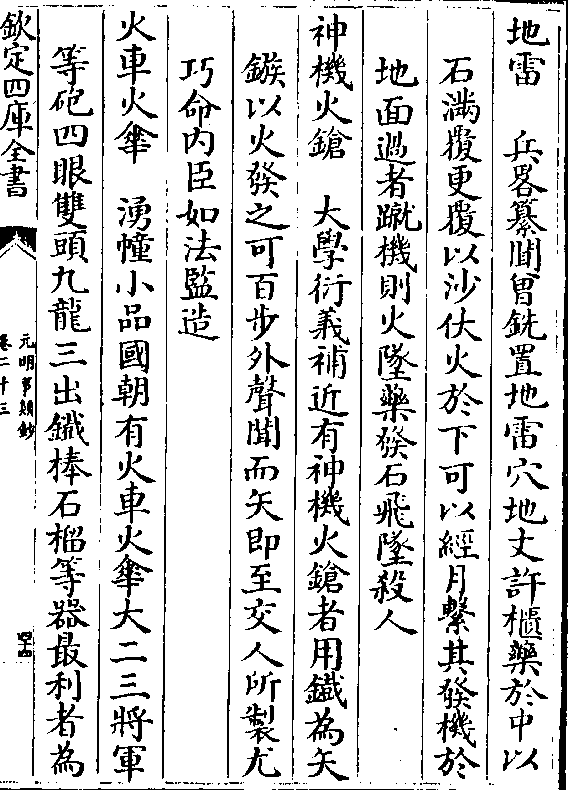 地雷　兵畧纂聞曾銑置地雷穴地丈許櫃藥於中以
石滿覆更覆以沙伏火於下可以經月繫其發機於
地面過者蹴機則火墜藥發石飛墜殺人
神機火鎗　大學衍義補近有神機火鎗者用鐵為矢
鏃以火發之可百步外聲聞而矢即至交人所製尤
巧命内臣如法監造
火車火傘　湧幢小品國朝有火車火傘大二三將軍
等砲四眼雙頭九龍三出鐵棒石榴等器最利者為
欽定四庫全書
元明事類鈔
卷二十三